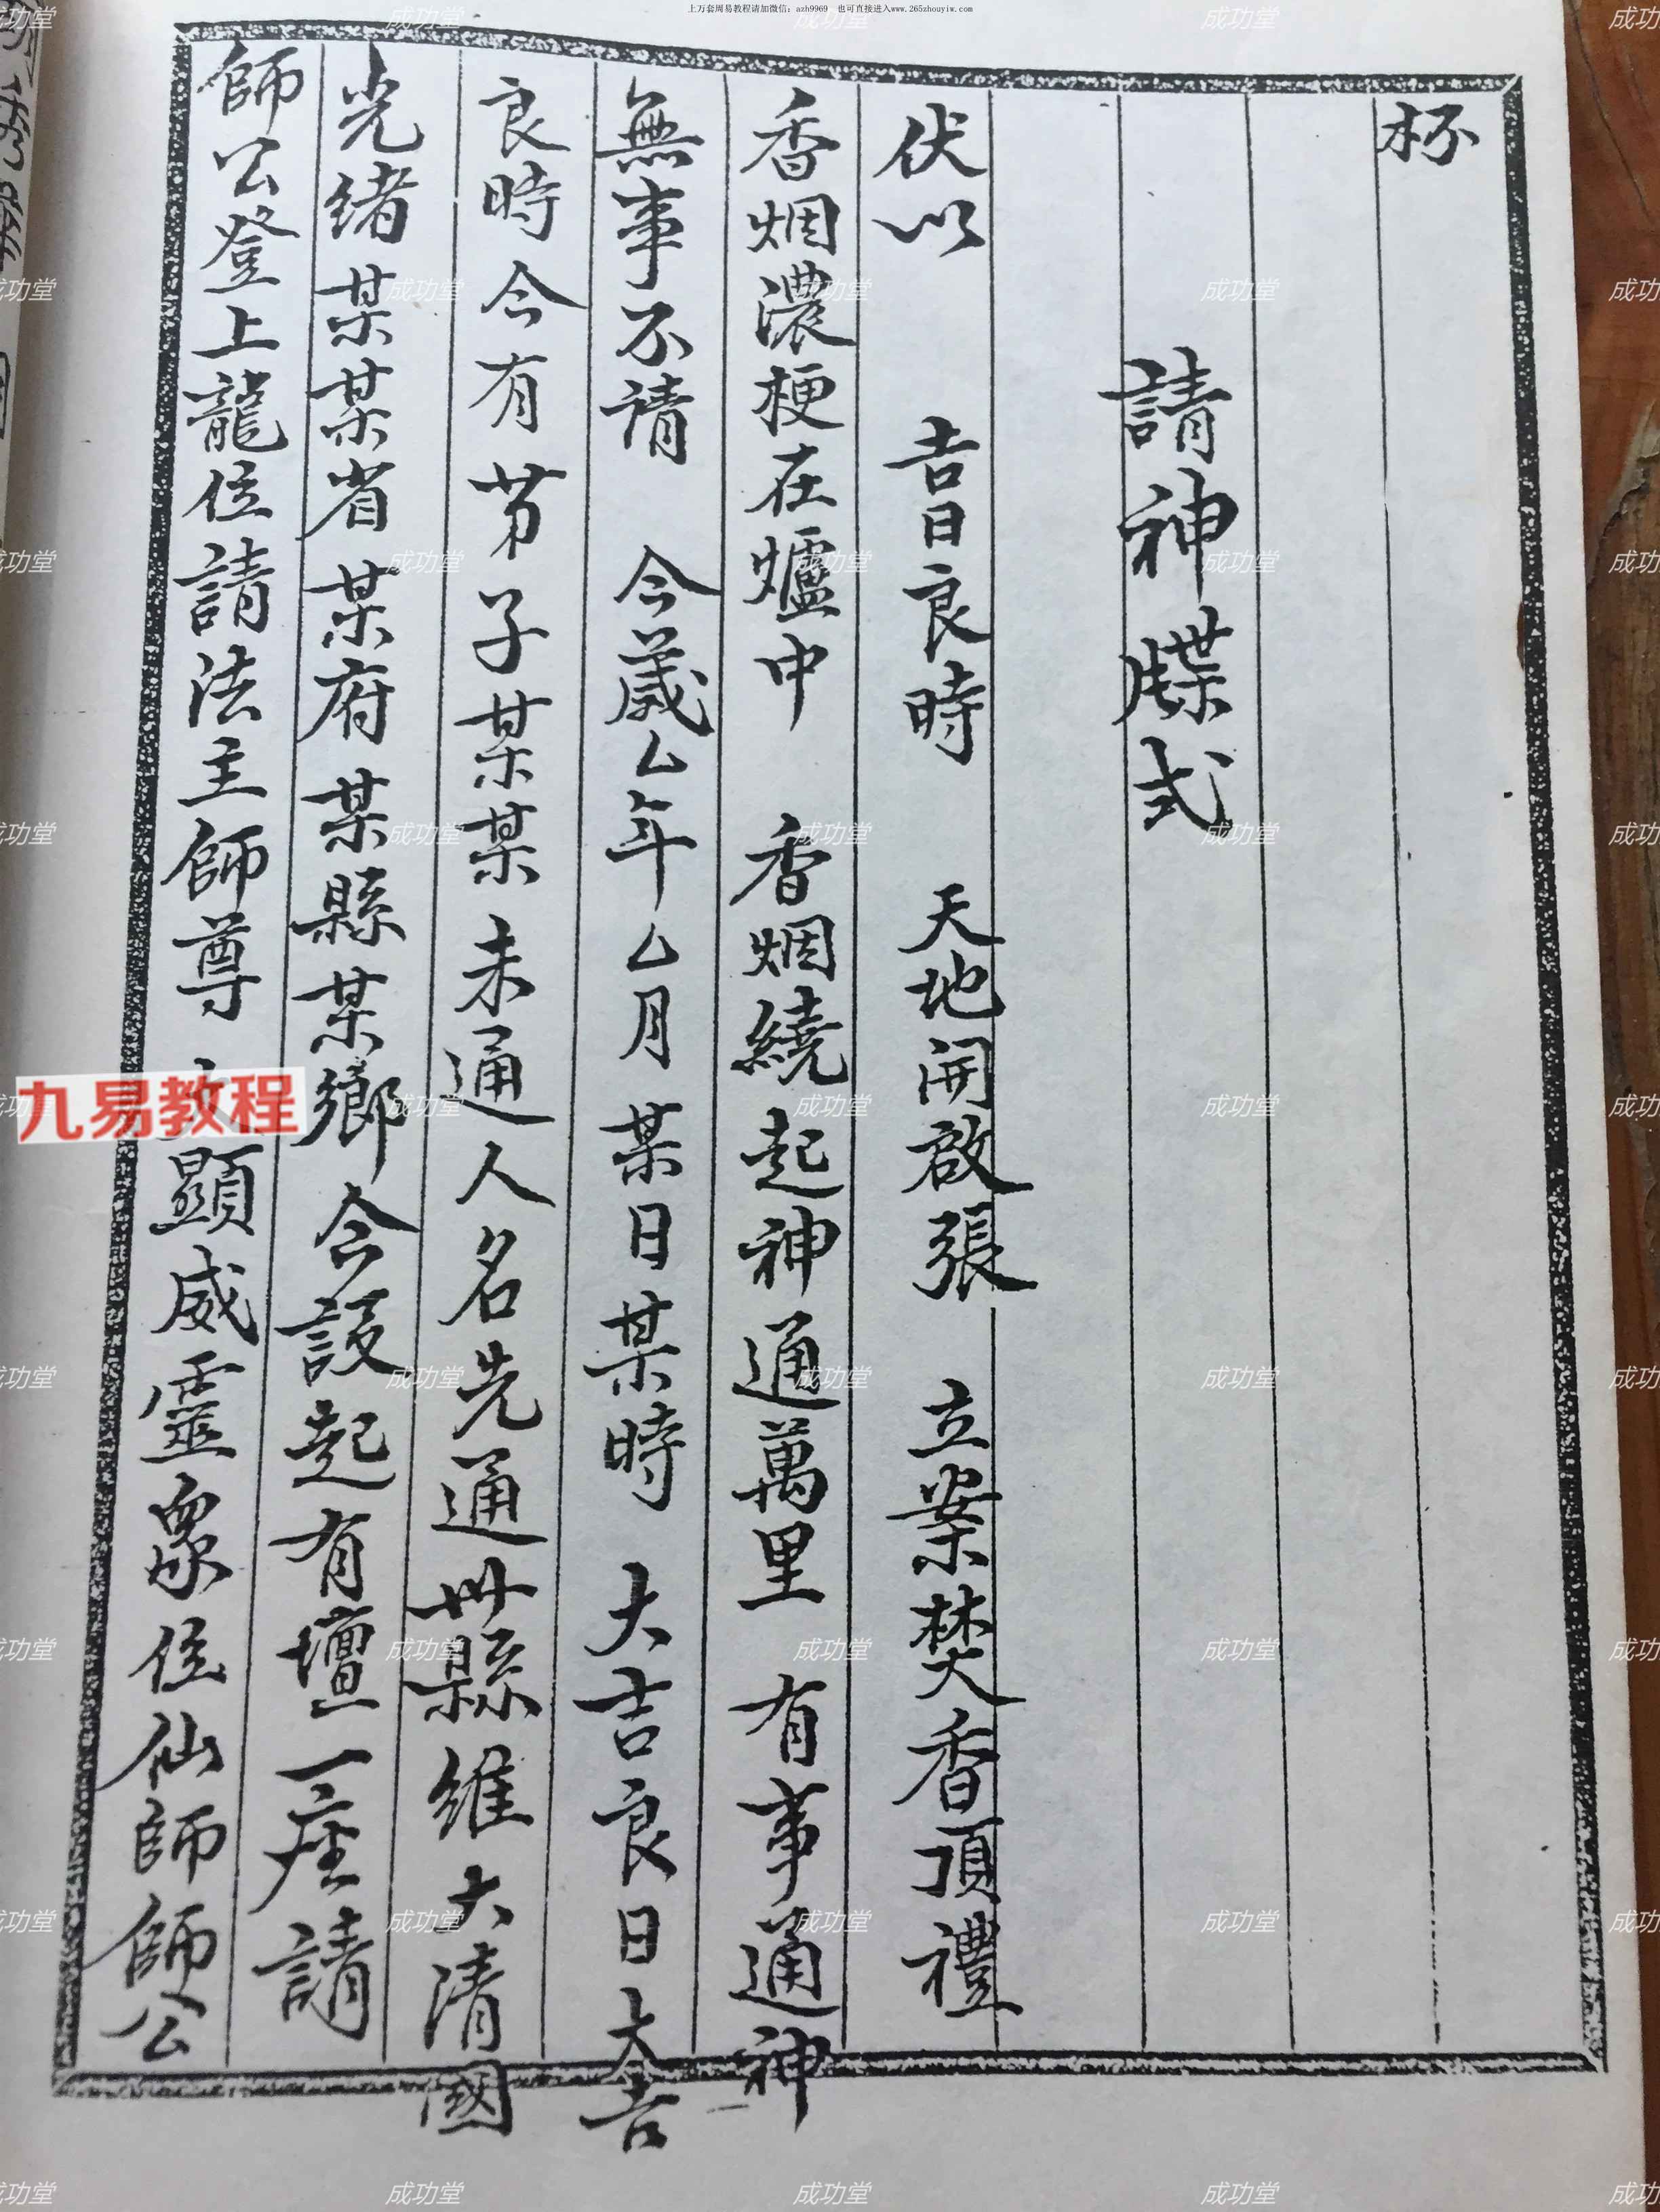 上万套周易教程请加微信：azh9969 也可直接进入www.265zhouyiw.com
杯
請神牒式
伏以 吉日良時 天地開啟張 立業焚香頂禮
香烟濃梗在爐中 香烟繞起神通萬里 有事通神
無事不請 今歲厶年厶月某日某時 大吉良日大吉
良時今有 芳子某某未通人名先通州縣維大清國
光绪某某省某府某縣某鄉今設起有壇一座請
師公登上龍位請法主師尊 大顯威靈眾位仙師師公
九易教程
成功堂